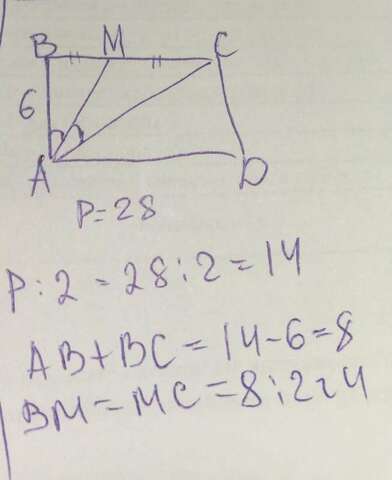 B M C
6
A D
P=28
P:2=28:2=14
AB+BC=14-6=8
BM=MC=8:2=4